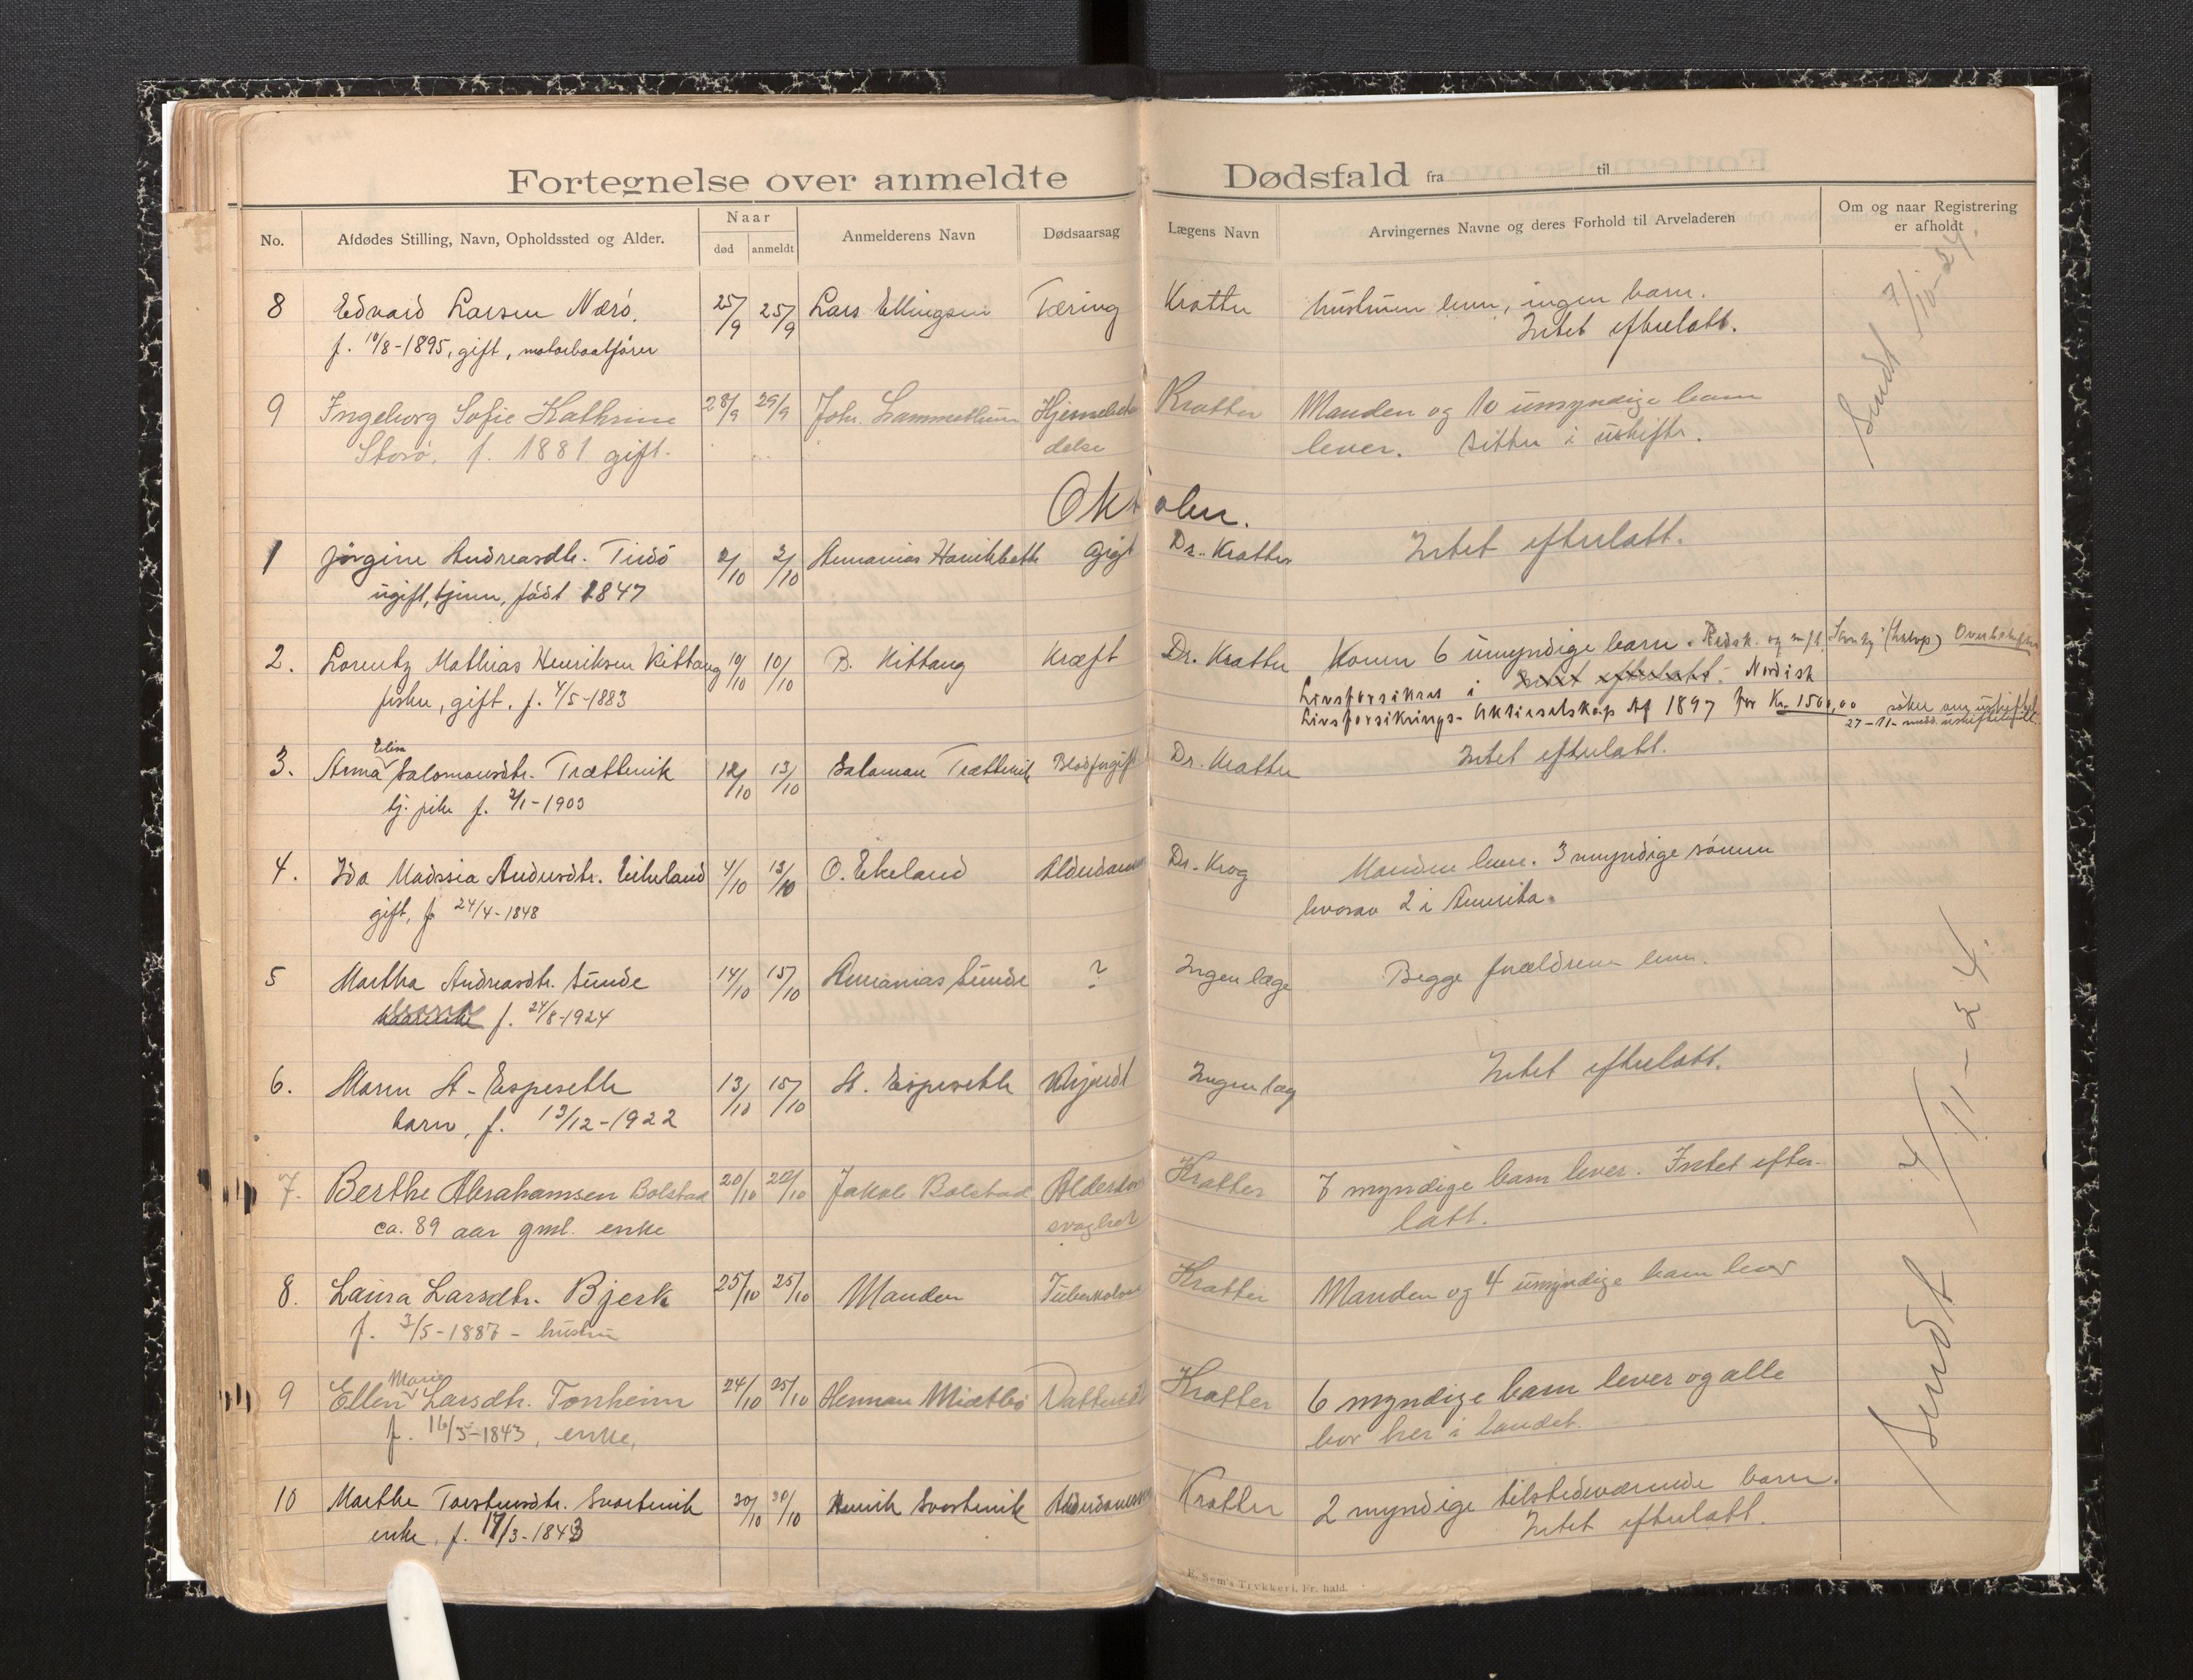 Fortegnelse over anmeldte Dødsfald fra til
No. Afdødes Stilling, Navn, Opholdssted og Alder. Naar død anmeldt Anmelderens Navn Dødsaarsag Lægens Navn Arvingernes Navne og deres Forhold til Arveladeren Om og naar Registrering er afholdt
8 Edvard Larsen Nærø. 25/9 25/9 Lars Ellingsen Tæring Kratter hustruen lever, ingen barn.
f. 10/8-1895, gift, motorbaatfører Intet efterlatt.
Sendt 7/10-24.
9 Ingeborg Sofie Kathrine 28/9 29/9 Joh. Hjernebetæn Kratter Manden og 10 umyndige barn
Storø, f. 1881 gift. delse lever. Sitter i uskifte.
Oktober.
1 Jørgine Andreasdtr. Tirdø 2/10 2/10 Ananias Gigt Dr. Kratter Intet efterlatt.
ugift, tjener, født 1847
2. Lorentz Mathias Henriksen Kittang 10/10 10/10 B. Kittang Kræft Dr. Kratter Konen 6 umyndige barn. Redsk. og
fisker, gift, f. 4/5-1883 Livsforsikret i Intet efterlatt. Nordisk
Livsforsikrings-Aktieselskap Af 1897 for Kr. 1500,00 søker om uskiftet
27-11- medd. uskiftebevill.
3. Anna Elisa Salomonsdtr. Trættevik 12/10 13/10 Salomon Trættevik Blodforgift Dr. Kratter Intet efterlatt.
tj. pike f. 2/1-1903
4. Ida Madssia Andersdtr. Eikeland 4/10 13/10 O. Ekeland Alderdoms Dr. Krog Manden lever. 3 myndige sønner
gift, f. 24/4-1848 hvorav 2 i Amerika.
5 Martha Andreasdtr. Sunde 14/10 15/10 Ananias Sunde ? Ingen læge Begge forældrene lever.
f. 24/8-1924
6. Maren A. Espeseth 13/10 15/10 A. Espeseth Ukjendt Ingen læg Intet efterlatt.
barn, f. 13/12-1922
7. Berthe Abrahamsen Bolstad 20/10 20/10 Jakob Bolstad Alderdom Kratter 7 myndige barn lever. Intet efter-
ca. 89 aar gml. enke svaghet latt.
8. Laura Larsdtr. Bjerk 25/10 25/10 Manden Tuberkolose Kratter Manden og 4 umyndige barn lever
f. 3/5-1887 - hustru
Sendt 4/11-24.
9 Ellen Marie Larsdtr. Tonheim 24/10 25/10 Herman Midtbø Vattersot Kratter 6 myndige barn lever og alle
f. 16/5-1843, enke, bor her i landet.
10 Marthe Torstensdtr. Svortevik 30/10 30/10 Henrik Svortevik Kratter 2 myndige tilstedeværende barn.
enke, f. 17/3-1843 Intet efterlatt.
E. Sem's Trykkeri, Fr. hald.